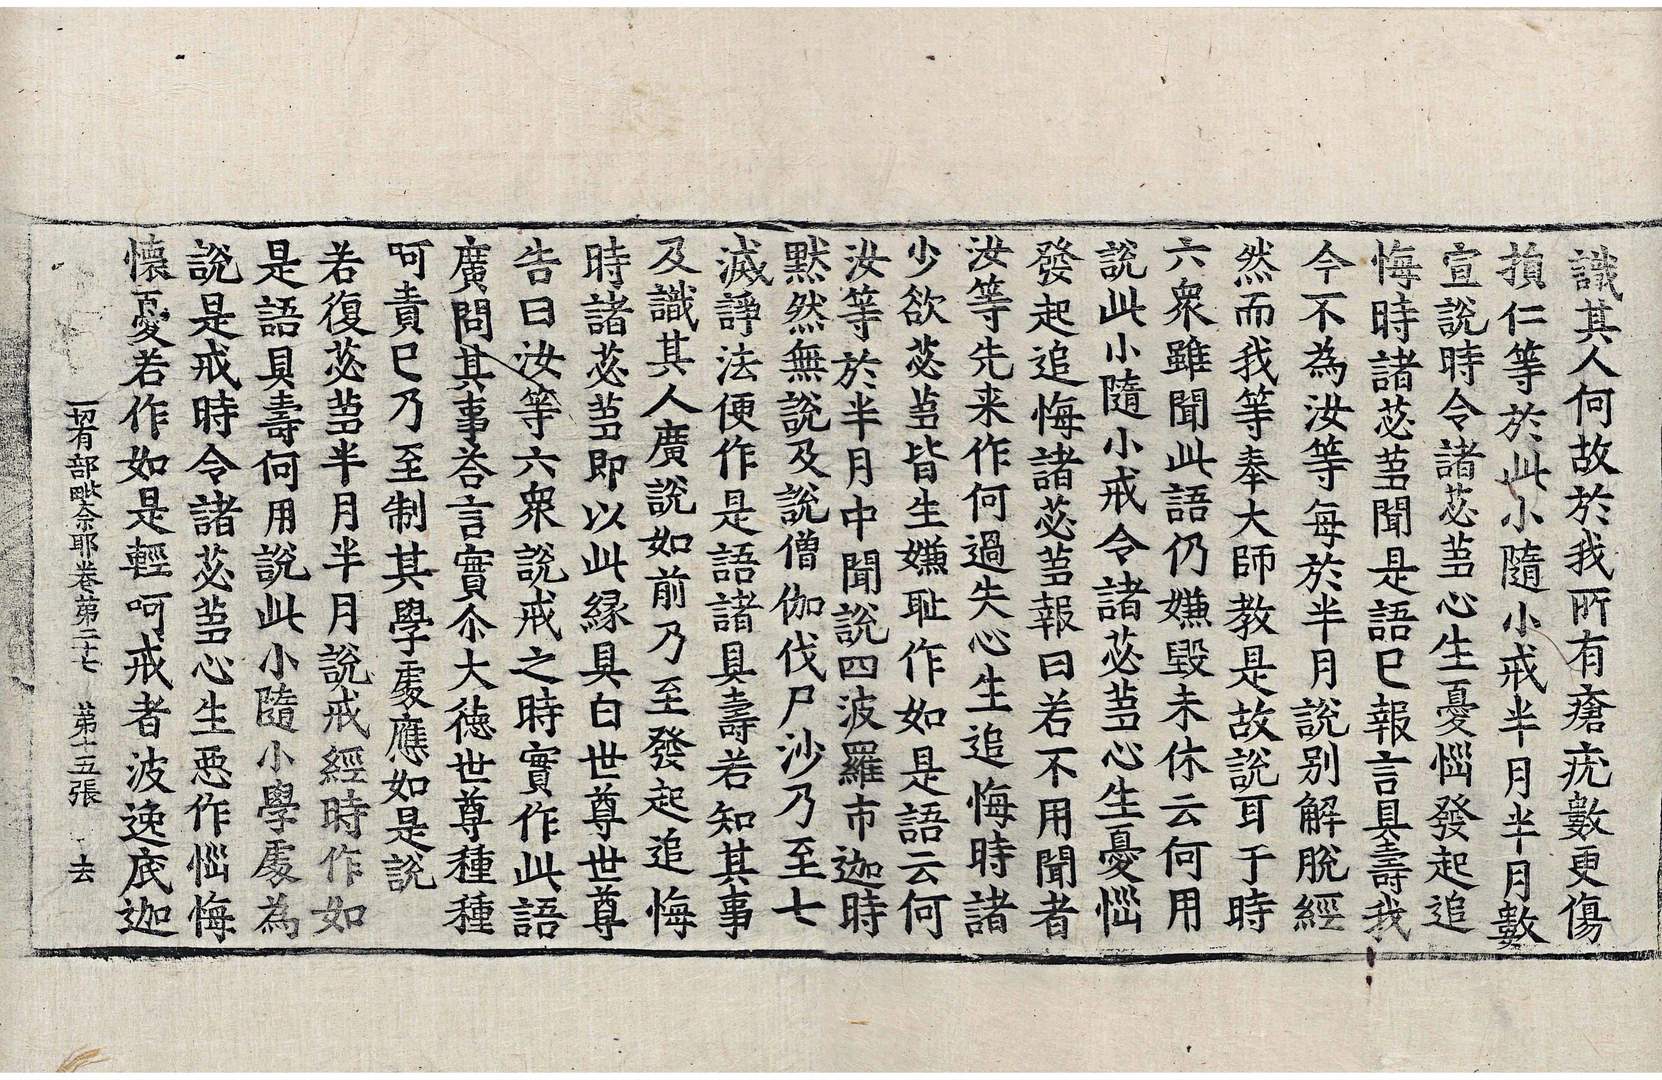 識其人何故於我所有瘡疣數更傷
損仁等於此小隨小戒半月半月數
宣說時令諸苾蒭心生憂惱發起追
悔時諸苾蒭聞是語已報言具壽我
今不為汝等每於半月說別解脫經
然而我等奉大師教是故說耳于時
六衆雖聞此語仍嫌毀未休云何用
說此小隨小戒令諸苾蒭心生憂惱
發起追悔諸苾蒭報曰若不用聞者
汝等先来作何過失心生追悔時諸
少欲苾蒭皆生嫌耻作如是語云何
汝等於半月中聞說四波羅市迦時
默然無說及說僧伽伐尸沙乃至七
滅諍法便作是語諸具壽若知其事
及識其人廣說如前乃至發起追悔
時諸苾蒭即以此縁具白世尊世尊
告曰汝等六衆說戒之時實作此語
廣問其事荅言實尒大德世尊種種
呵責已乃至制其學處應如是說
若復苾蒭半月半月說戒經時作如
是語具壽何用說此小隨小學處為
說是戒時令諸苾蒭心生惡作惱悔
懷憂若作如是輕呵戒者波逸底迦
一切有部毗奈耶卷第二十七 第十五張 去